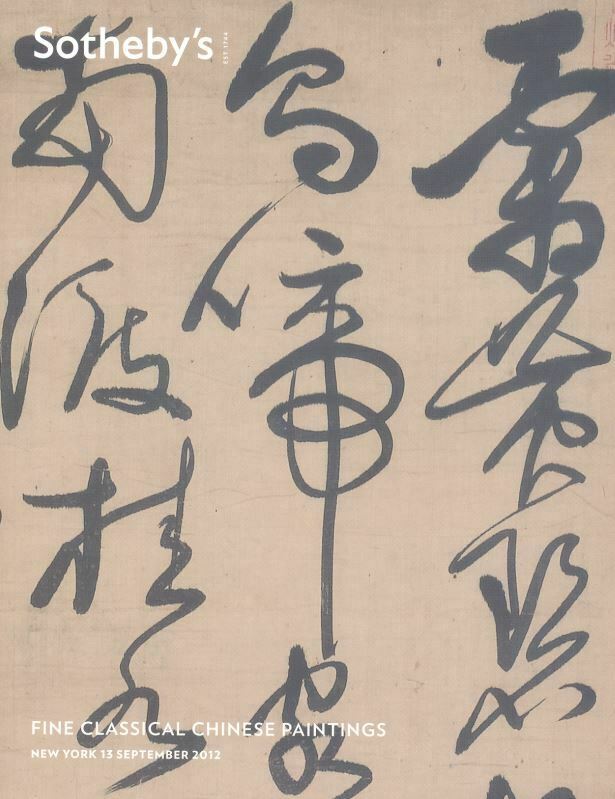 Sotheby's EST. 1744
霜黃碧
烏啼客
南渡桂水
FINE CLASSICAL CHINESE PAINTINGS
NEW YORK 13 SEPTEMBER 2012